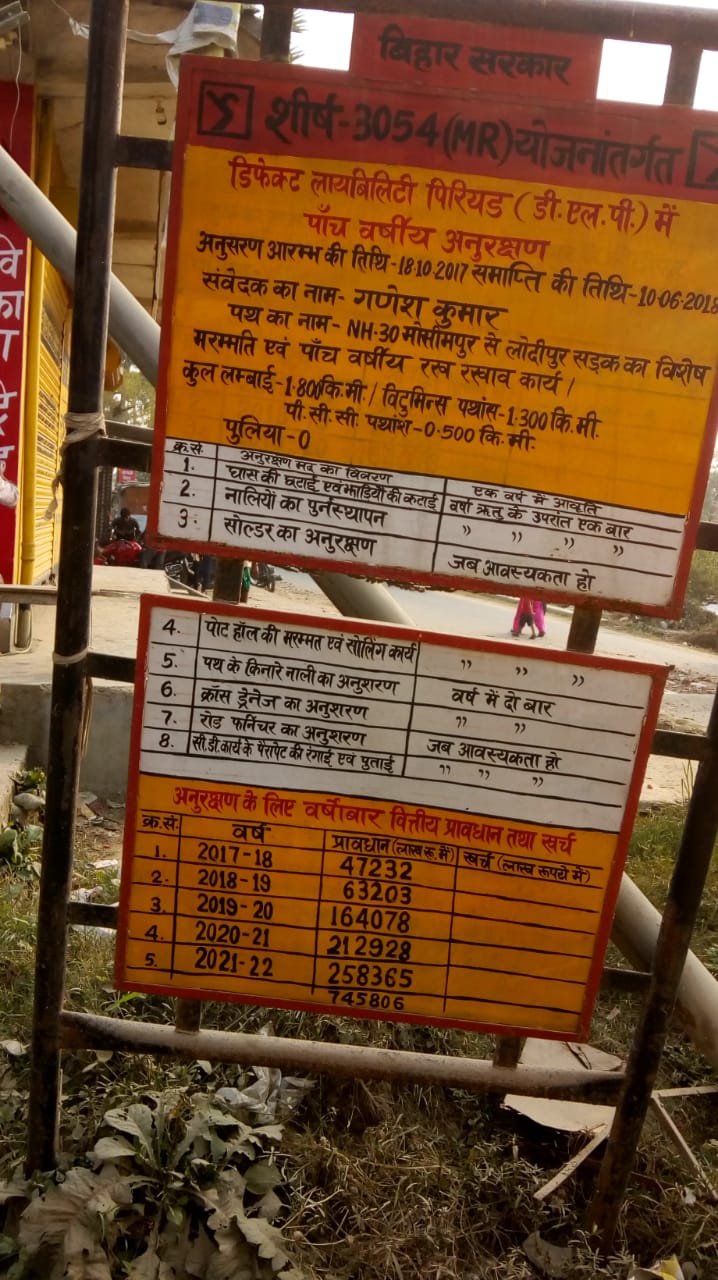 बिहार सरकार
शीर्ष-3054(MR)योजनांतर्गत
डिफेक्ट लायबिलिटी पिरियड (डी.एल.पी.) में
पाँच वर्षीय अनुरक्षण
अनुसरण आरम्भ की तिथि-18.10.2017 समाप्ति की तिथि-10.06.2018
संवेदक का नाम- गणेश कुमार
पथ का नाम- NH-30 मोसीमपुर से लोदीपुर सड़क का विशेष
मरम्मति एवं पाँच वर्षीय रख रखाव कार्य।
कुल लम्बाई-1.800कि.मी./ विटुमिन्स पथांस-1.300 कि.मी.
पी.सी.सी. पथांश-0.500 कि.मी.
पुलिया-0
क्र.सं. अनुरक्षण मद का विवरण एक वर्ष में आवृति
1. घास की छटाई एवं झाडियों की कटाई वर्षा ऋतु के उपरांत एक बार
2. नालियों का पुर्नस्थापन " " " "
3. सोल्डर का अनुरक्षण जब आवस्यकता हो
4. पोट हॉल की मरम्मत एवं सोलिंग कार्य " " "
5. पथ के किनारे नाली का अनुशरण वर्ष में दो बार
6. क्रॉस ड्रेनेज का अनुशरण " "
7. रोड फर्निचर का अनुशरण जब आवस्यकता हो
8. सी.डी.कार्य के पैरापेट की रंगाई एवं पुताई " " "
अनुरक्षण के लिए वर्षोबार वित्तीय प्रावधान तथा खर्च
क्र.सं. वर्ष प्रावधान (लाख रू. में) खर्च (लाख रूपये में)
1. 2017-18 47232
2. 2018-19 63203
3. 2019-20 164078
4. 2020-21 212928
5. 2021-22 258365
745806